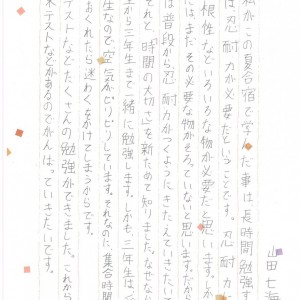 山田七海
私がこの夏合宿で学んだ事は長時間勉強す
は、忍耐力が必要だということです。忍耐力
根性などいろいろな物が必要だと思います。
には、まだその必要な物がそろっていないと思います。だから
は普段から忍耐力がつくようにきたえていきたいで
それと、「時間の大切さ」を新ためて知りました。なぜなら
生から三年生まで一緒に勉強します。しかも、三年生は
生なので空気がピリピリしています。それなのに、集合時間
おくれたら迷わくをかけてしまうからです。
テストなどたくさんの勉強ができました。これから
末テストなどがあるのでがんばっていきたいです。